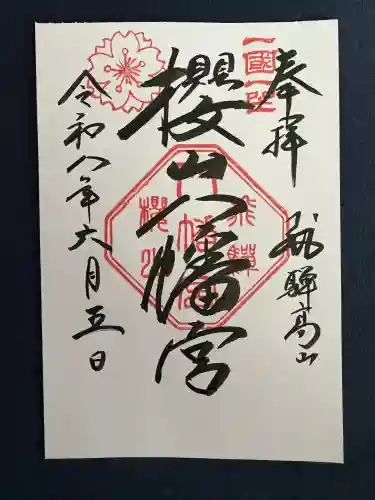 奉拝
飛騨高山
一国一社
櫻山八幡宮
飛騨
八幡宮
櫻山
令和八年六月五日